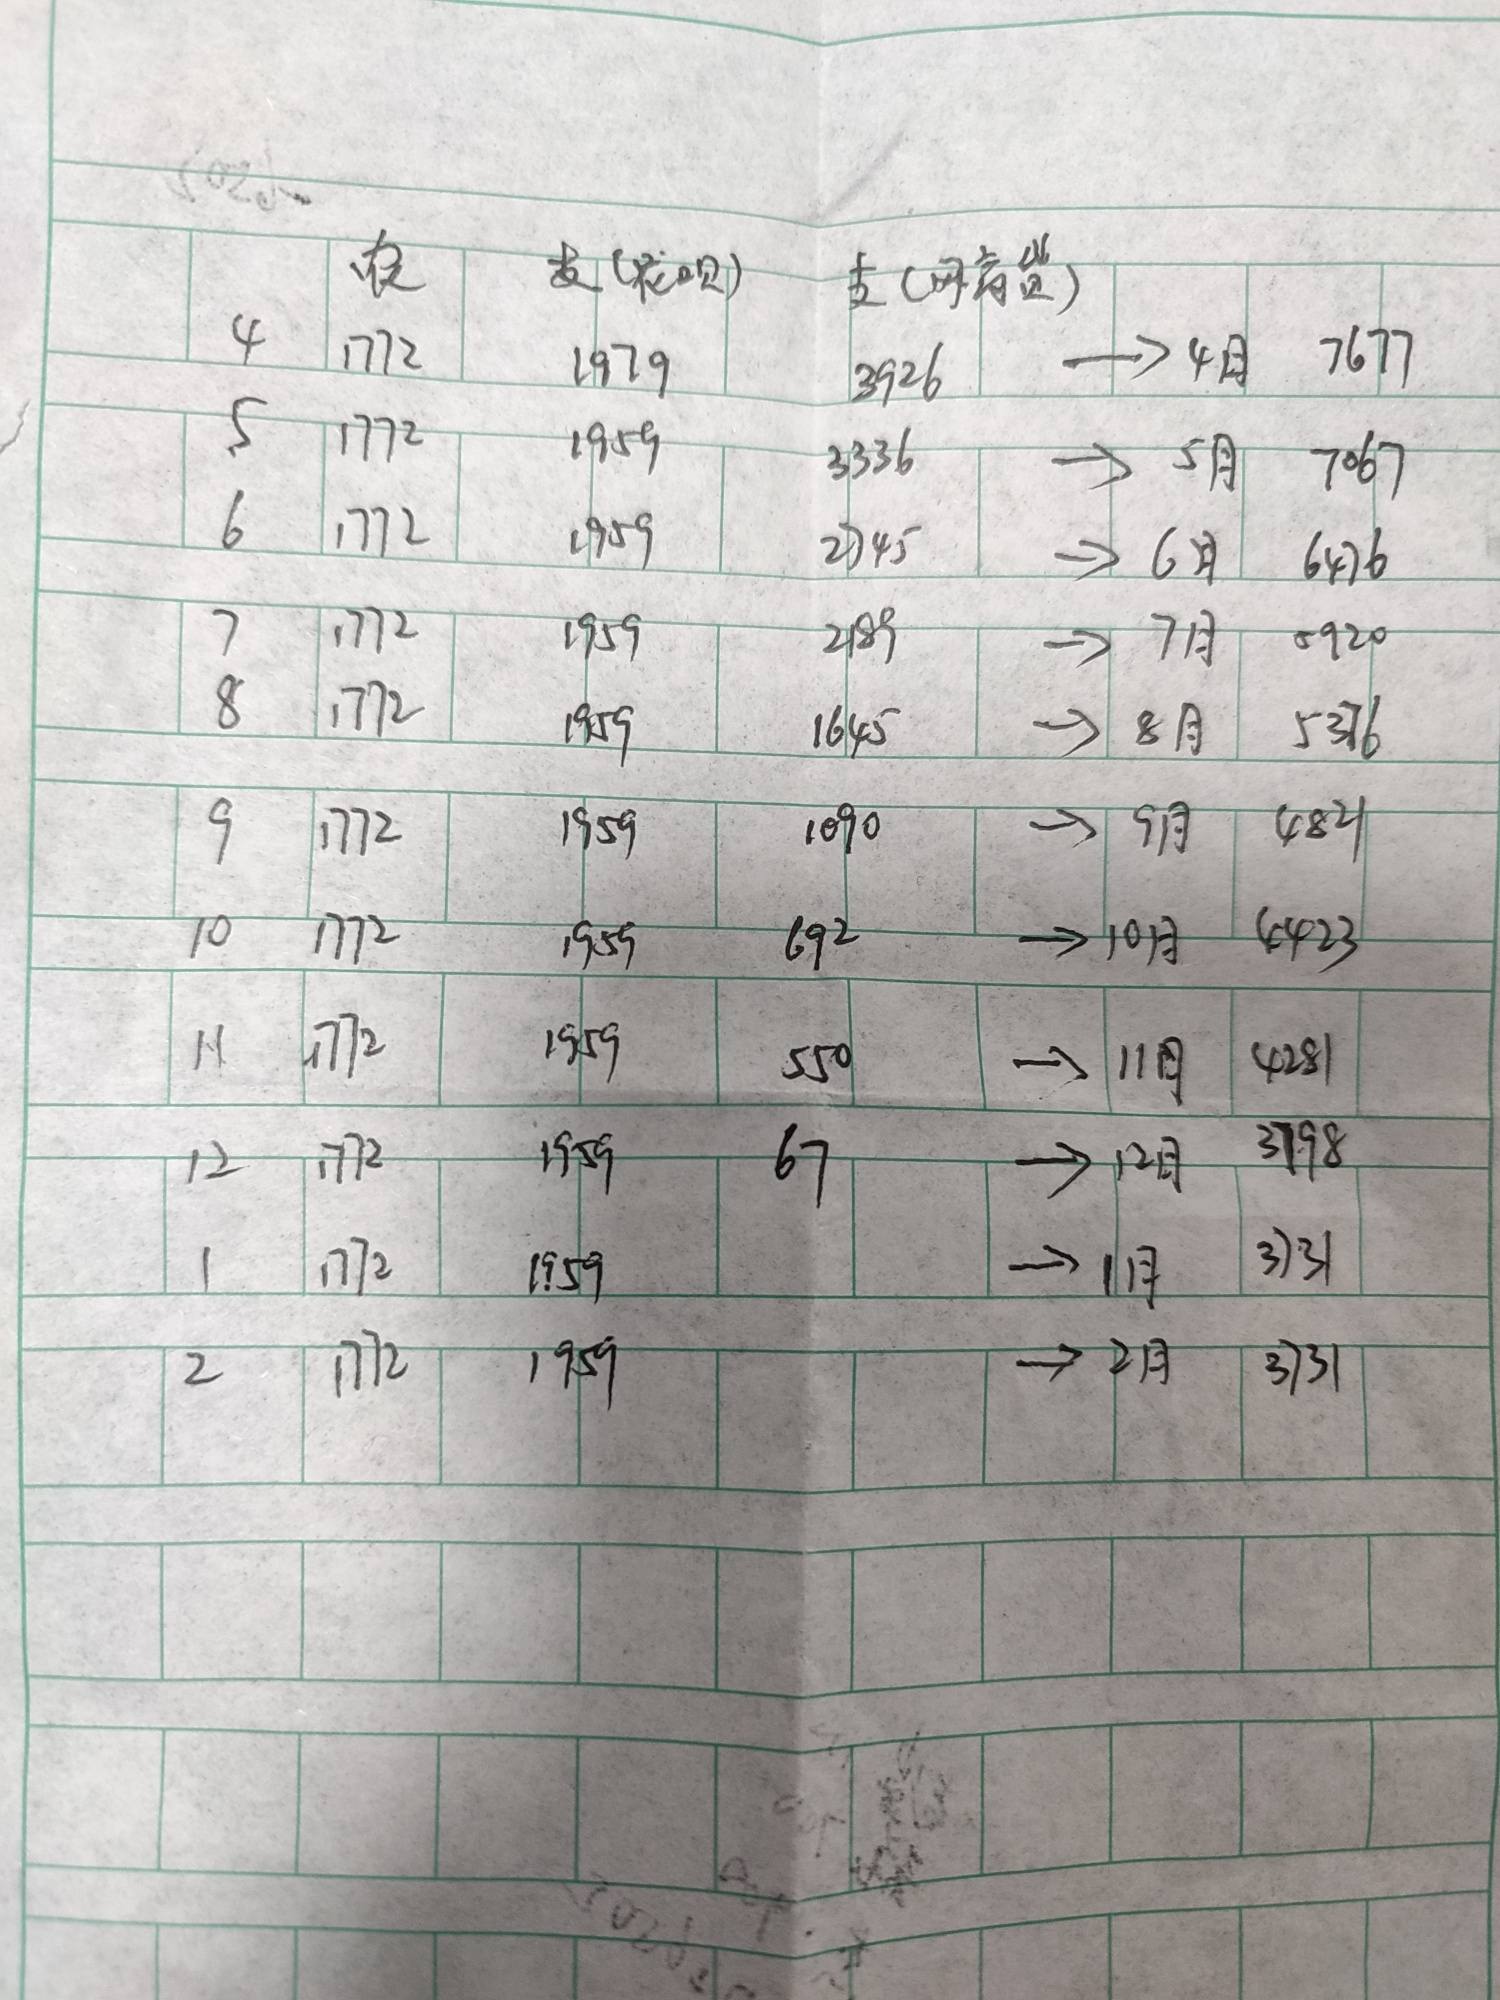 农 支(花呗) 支(网商贷)
4 1772 1979 3926 → 4月 7677
5 1772 1959 3336 → 5月 7067
6 1772 1959 2745 → 6月 6476
7 1772 1959 2189 → 7月 5920
8 1772 1959 1645 → 8月 5376
9 1772 1959 1090 → 9月 4821
10 1772 1959 692 → 10月 4423
11 1772 1959 550 → 11月 4281
12 1772 1959 67 → 12月 3798
1 1772 1959 → 1月 3731
2 1772 1959 → 2月 3731